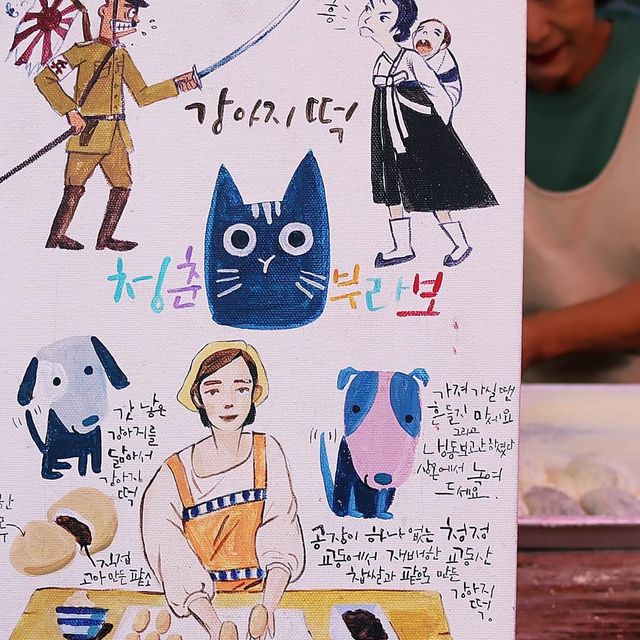 흥
강아지 떡
청춘 부라보
갓 낳은
강아지를
닮아서
강아지
떡
가져 가실 땐
흔들지 맛세요
그리고
냉동보관하였다
상온에서 녹여
드세요.
직접
고아 만든 팥소
공장이 하나 없는 청정
교동에서 재배한 교동산
찹쌀과 팥으로 만든
강아지
떡.